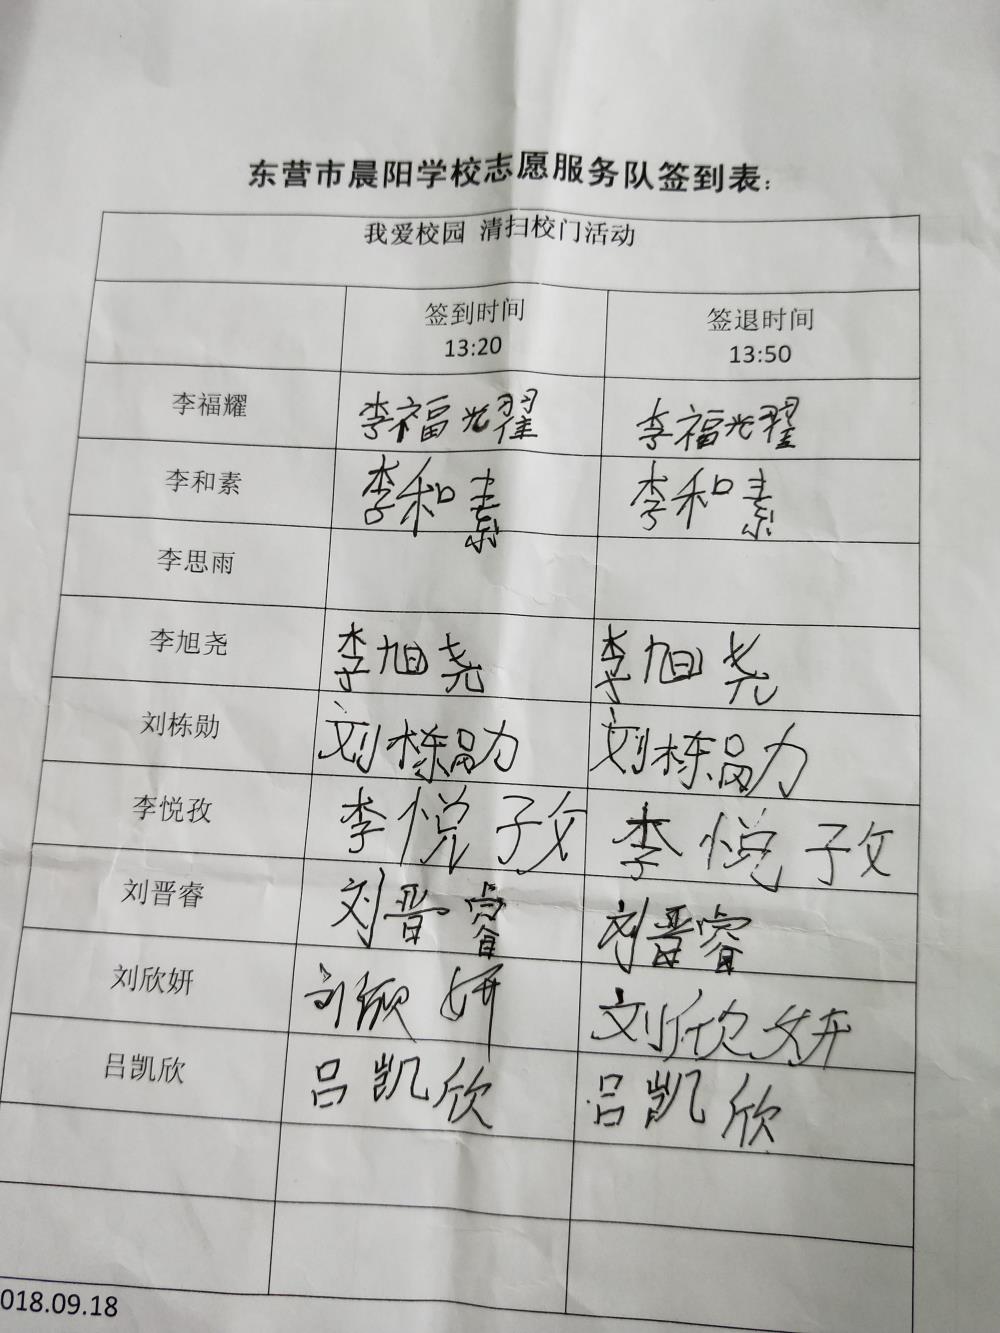 东营市晨阳学校志愿服务队签到表：
我爱校园 清扫校门活动
签到时间 签退时间
13:20 13:50
李福耀 李福耀 李福耀
李和素 李和素 李和素
李思雨
李旭尧 李旭尧 李旭尧
刘栋勋 刘栋勋 刘栋勋
李悦孜 李悦孜 李悦孜
刘晋睿 刘晋睿 刘晋睿
刘欣妍 刘欣妍 刘欣妍
吕凯欣 吕凯欣 吕凯欣
018.09.18